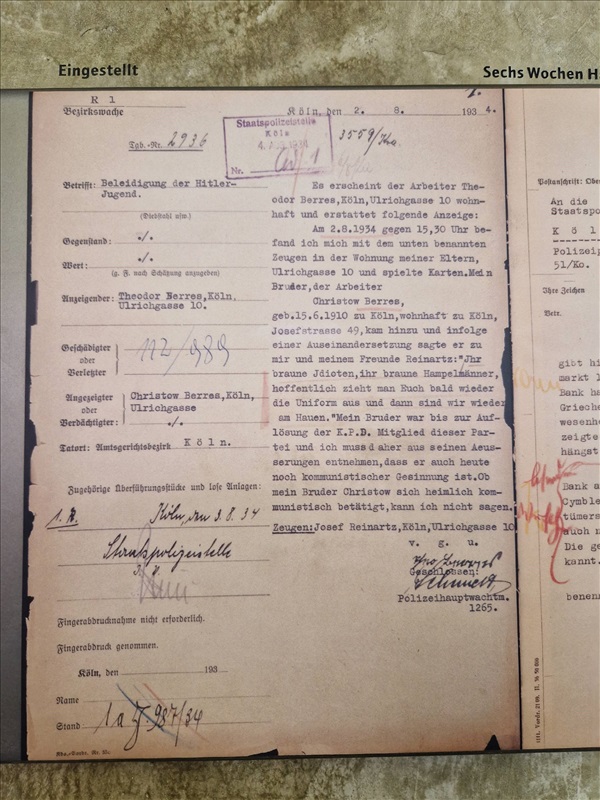 Eingestellt
Sechs Wochen H
R 1
Bezirkswache
Köln, den 2. 8. 1934.
Tgb.-Nr. 2936
Staatspolizeistelle
Köln
Nr.
3559/
Betrifft: Beleidigung der Hitler-
Jugend.
(Diebstahl usw.)
Gegenstand: ./.
Wert: ./.
(g. F. nach Schätzung anzugeben)
Anzeigender: Theodor Berres, Köln,
Ulrichgasse 10.
Geschädigter
oder
Verletzter
112/989
Angezeigter
oder
Verdächtigter:
Christow Berres, Köln,
Ulrichgasse
./.
Tatort: Amtsgerichtsbezirk Köln.
Zugehörige Überführungsstücke und lose Anlagen:
Köln, den 3.8.34
Staatspolizeistelle
Fingerabdrucknahme nicht erforderlich.
Fingerabdruck genommen.
Köln, den 193
Name
Stand
1a J 987/34
Es erscheint der Arbeiter Theo-
odor Berres,Köln,Ulrichgasse 10 wohn-
haft und erstattet folgende Anzeige:
Am 2.8.1934 gegen 15,30 Uhr be-
fand ich mich mit dem unten benannten
Zeugen in der Wohnung meiner Eltern,
Ulrichgasse 10 und spielte Karten.Mein
Bruder,der Arbeiter
Christow Berres,
geb.15.6.1910 zu Köln,wohnhaft zu Köln,
Josefstrasse 49,kam hinzu und infolge
einer Auseinandersetzung sagte er zu
mir und meinem Freunde Reinartz:"Jhr
braune Jdioten,ihr braune Hampelmänner,
hoffentlich zieht man Euch bald wieder
die Uniform aus und dann sind wir wieder
am Hauen."Mein Bruder war bis zur Auf-
lösung der K.P.D. Mitglied dieser Par-
tei und ich muss daher aus seinen Aeus-
serungen entnehmen,dass er auch heute
noch kommunistischer Gesinnung ist.Ob
mein Bruder Christow sich heimlich kom-
munistisch betätigt,kann ich nicht sagen.
Zeugen:Josef Reinartz,Köln,Ulrichgasse 10
v. g. u.
Geschlossen:
Polizeihauptwachtm.
1265.
Postanschrift:
An die
Staatspo
K ö l
Polizeip
51/Ko.
Ihre Zeichen
Betr.
gibt hi
markt 1
Bank ha
Grieche
wesenhe
zeigte
hängst
Bank a
Cymble
tümers
auch n
Die ge
kannt.
benenn